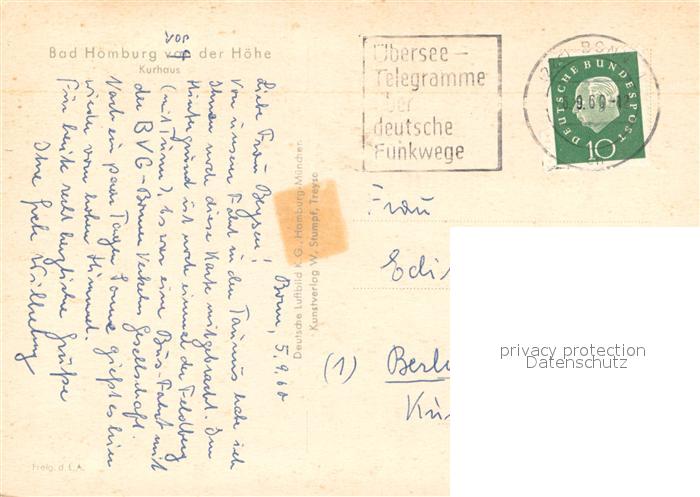 Bad Homburg vor der Höhe
Kurhaus
Übersee-
Telegramme
über
deutsche
Funkwege
DEUTSCHE BUNDESPOST
10
Bonn, 5.9.60
Liebe Frau Beyser!
Von unserer Fahrt in den Taunus habe ich
Ihnen noch diese Karte mitgebracht. Im
Hintergrund ist noch einmal der Feldberg
(mit Turm). Es war eine Bus-Fahrt mit
der BVG-Bonner Verkehrs Gesellschaft.
Nach ein paar Tagen Sonne gießt es hier
wieder vom hohen Himmel.
Für heute recht herzliche Grüße
Ihre Grete Wilhelmy
Deutsche Luftbild K.G., Hamburg-München
Kunstverlag W. Stumpf, Treysa
Frau
Edi
(1) Berl
Freig. d. L.A.
privacy protection
Datenschutz